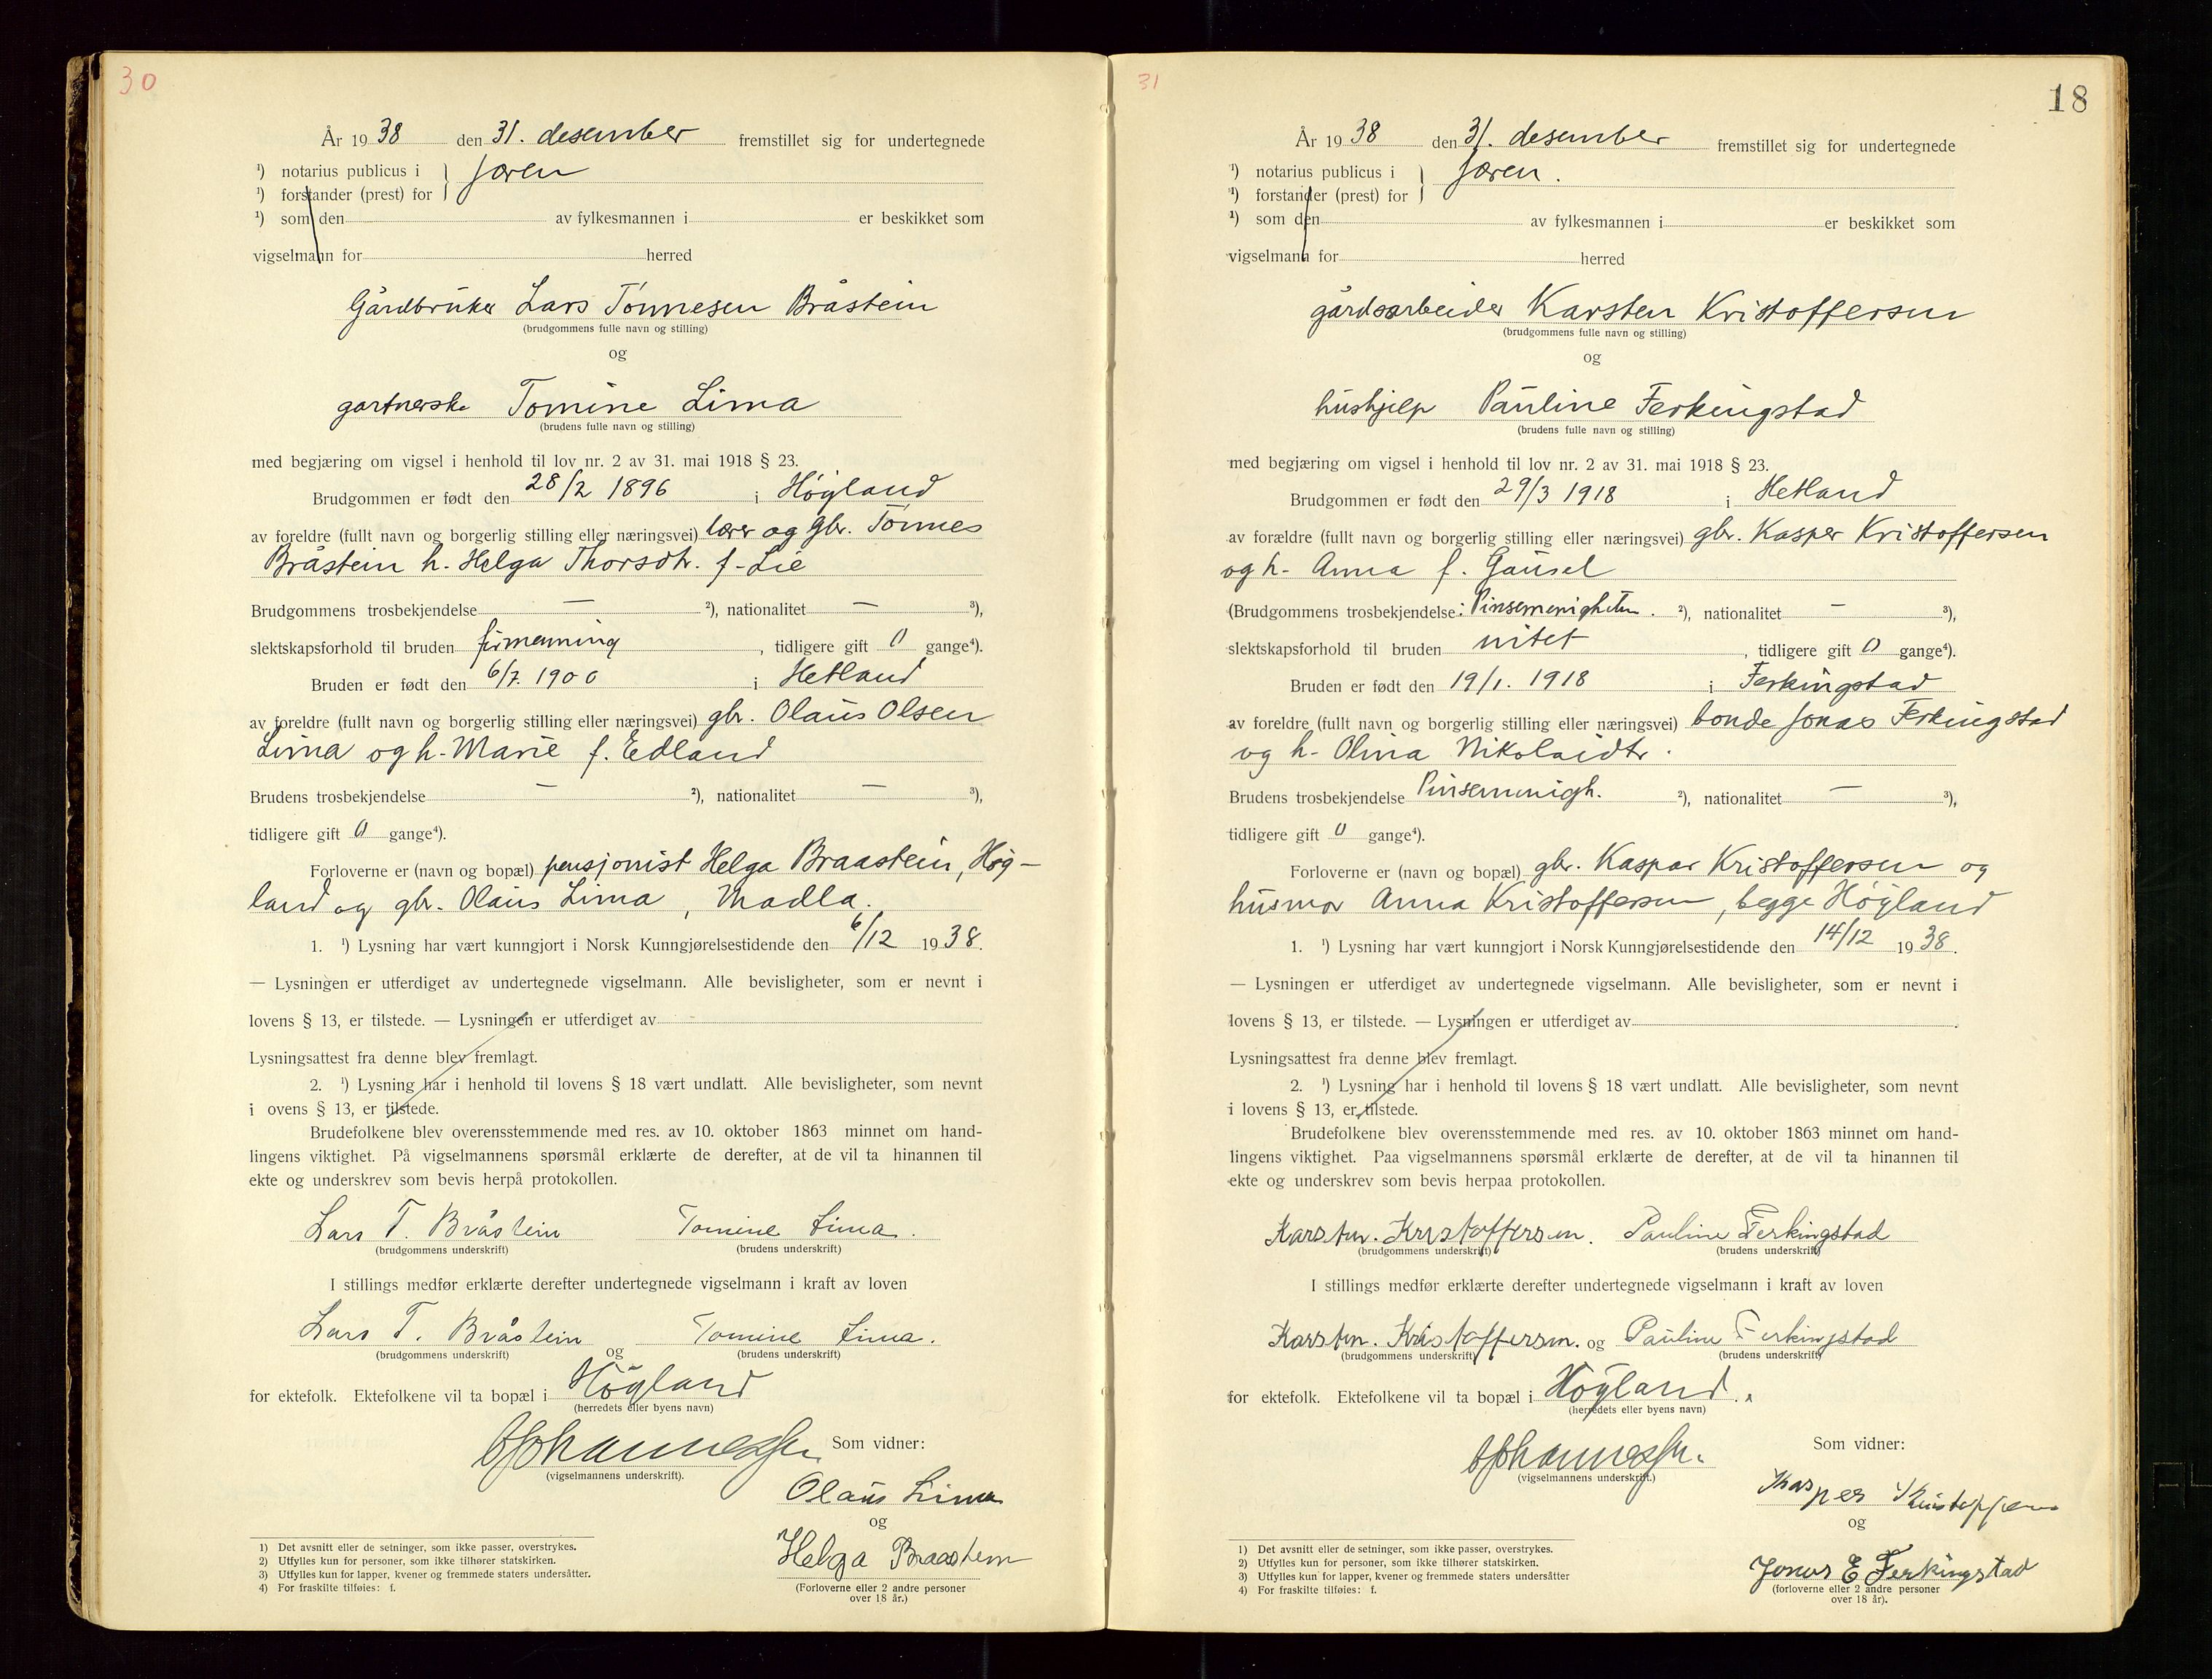 30
År 1938 den 31. desember fremstillet sig for undertegnede
¹) notarius publicus i } Jæren
¹) forstander (prest) for
¹) som den av fylkesmannen i er beskikket som
vigselmann for herred
Gårdbruker Lars Tönnesen Bråstein
(brudgommens fulle navn og stilling)
og
gartnerske Tomine Lima
(brudens fulle navn og stilling)
med begjæring om vigsel i henhold til lov nr. 2 av 31. mai 1918 § 23.
Brudgommen er født den 28/2 1896 i Høyland
av foreldre (fullt navn og borgerlig stilling eller næringsvei) lærer og gbr. Tönnes
Bråstein h. Helga Thorsdtr. f. Lie
Brudgommens trosbekjendelse — ²), nationalitet — ³),
slektskapsforhold til bruden firmenning, tidligere gift 0 gange⁴).
Bruden er født den 6/7. 1900 i Hetland
av foreldre (fullt navn og borgerlig stilling eller næringsvei) gbr. Olaus Olsen
Lima og h. Marie f. Edland
Brudens trosbekjendelse — ²), nationalitet — ³),
tidligere gift 0 gange⁴).
Forloverne er (navn og bopæl) pensjonist Helga Braastein, Høy-
land og gbr. Olaus Lima, Madla.
1. ¹) Lysning har vært kunngjort i Norsk Kunngjørelsestidende den 6/12 1938.
— Lysningen er utferdiget av undertegnede vigselmann. Alle bevisligheter, som er nevnt i
lovens § 13, er tilstede. — Lysningen er utferdiget av
Lysningsattest fra denne blev fremlagt.
2. ¹) Lysning har i henhold til lovens § 18 vært undlatt. Alle bevisligheter, som nevnt
i ovens § 13, er tilstede.
Brudefolkene blev overensstemmende med res. av 10. oktober 1863 minnet om hand-
lingens viktighet. På vigselmannens spørsmål erklærte de derefter, at de vil ta hinannen til
ekte og underskrev som bevis herpå protokollen.
Lars T. Bråstein Tomine Lima.
(brudgommens underskrift) (brudens underskrift)
I stillings medfør erklærte derefter undertegnede vigselmann i kraft av loven
Lars T. Bråstein og Tomine Lima.
(brudgommens underskrift) (brudens underskrift)
for ektefolk. Ektefolkene vil ta bopæl i Høyland
(herredets eller byens navn)
Som vidner:
(vigselmannens underskrift).
Olaus Lima
og
Helga Braastein
(Forloverne eller 2 andre personer
over 18 år.)
1) Det avsnitt eller de setninger, som ikke passer, overstrykes.
2) Utfylles kun for personer, som ikke tilhører statskirken.
3) Utfylles kun for lapper, kvener og fremmede staters undersåtter.
4) For fraskilte tilføies: f.
31
18
År 1938 den 31. desember fremstillet sig for undertegnede
¹) notarius publicus i } Jæren.
¹) forstander (prest) for
¹) som den av fylkesmannen i er beskikket som
vigselmann for herred
gårdsarbeider Karsten Kristoffersen
(brudgommens fulle navn og stilling)
og
hushjelp Pauline Ferkingstad
(brudens fulle navn og stilling)
med begjæring om vigsel i henhold til lov nr. 2 av 31. mai 1918 § 23.
Brudgommen er født den 29/3 1918 i Hetland
av forældre (fullt navn og borgerlig stilling eller næringsvei) gbr. Kasper Kristoffersen
og h. Anna f. Gausel
(Brudgommens trosbekjendelse: Pinsemenigheten. ²), nationalitet — ³),
slektskapsforhold til bruden intet, tidligere gift 0 gange⁴).
Bruden er født den 19/1. 1918 i Ferkingstad
av foreldre (fullt navn og borgerlig stilling eller næringsvei) bonde Jonas Ferkingstad
og h. Olina Nikolaidtr.
Brudens trosbekjendelse Pinsemenigh. ²), nationalitet — ³),
tidligere gift 0 gange⁴).
Forloverne er (navn og bopæl) gbr. Kaspar Kristoffersen og
husmor Anna Kristoffersen, begge Høyland
1. ¹) Lysning har vært kunngjort i Norsk Kunngjørelsestidende den 14/12 1938.
— Lysningen er utferdiget av undertegnede vigselmann. Alle bevisligheter, som er nevnt i
lovens § 13, er tilstede. — Lysningen er utferdiget av
Lysningsattest fra denne blev fremlagt.
2. ¹) Lysning har i henhold til lovens § 18 vært undlatt. Alle bevisligheter, som nevnt
i lovens § 13, er tilstede.
Brudefolkene blev overensstemmende med res. av 10. oktober 1863 minnet om hand-
lingens viktighet. Paa vigselmannens spørsmål erklærte de derefter, at de vil ta hinannen til
ekte og underskrev som bevis herpaa protokollen.
Karsten. Kristoffersen. Pauline Ferkingstad
(brudgommens underskrift) (brudens underskrift)
I stillings medfør erklærte derefter undertegnede vigselmann i kraft av loven
Karsten. Kristoffersen. og Pauline Ferkingstad
(brudgommens underskrift) (brudens underskrift)
for ektefolk. Ektefolkene vil ta bopæl i Høyland.
(herredets eller byens navn)
Som vidner:
(vigselmannens underskrift.)
Kasper Kristoffersen
og
Jonas E Ferkingstad
(forloverne eller 2 andre personer
over 18 år).
1) Det avsnitt eller de setninger, som ikke passer, overstrykes.
2) Utfylles kun for personer, som ikke tilhører statskirken.
3) Utfylles kun for lapper, kvener og fremmede staters undersåtter
4) For fraskilte tilføies: f.